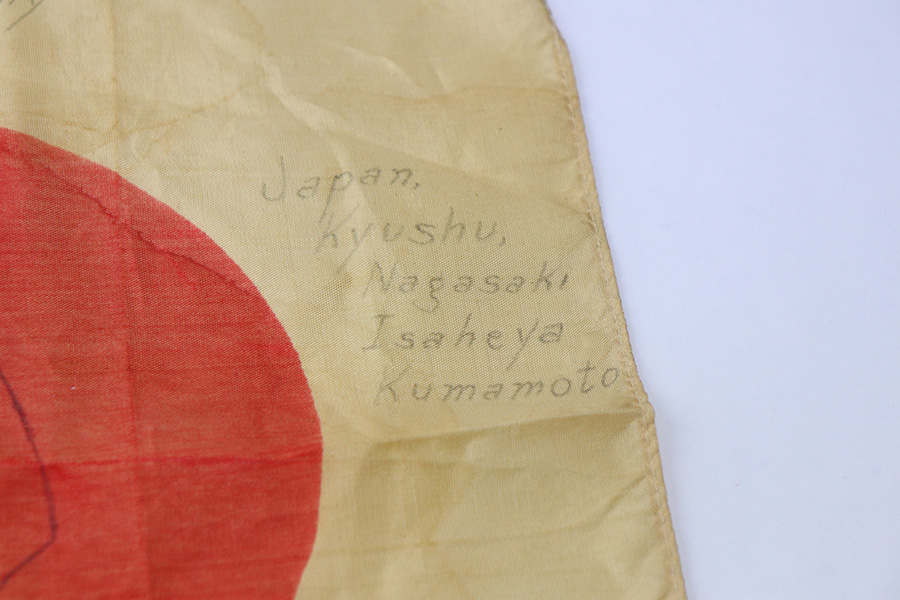 Japan,
Kyushu,
Nagasaki
Isaheya
Kumamoto